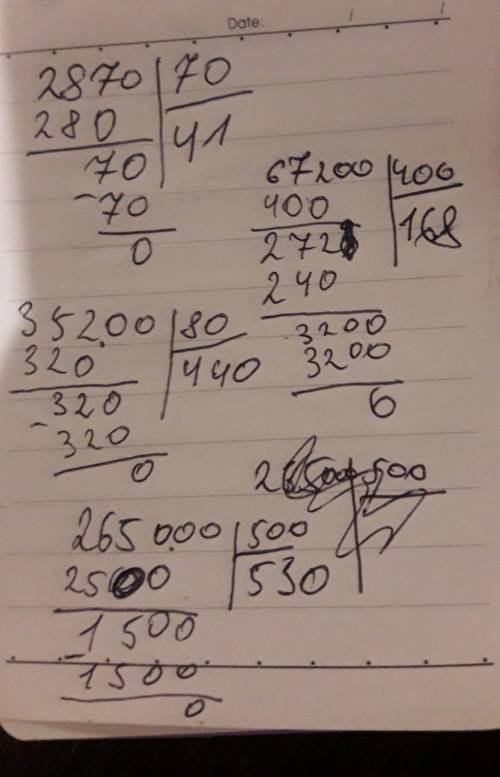 Date: / /
2870 | 70
280 | 41
70
-70
0
67200 | 400
400 | 168
272
240
3200
3200
0
35200 | 80
320 | 440
320
-320
0
500
265000 | 500
2500 | 530
1500
-1500
0